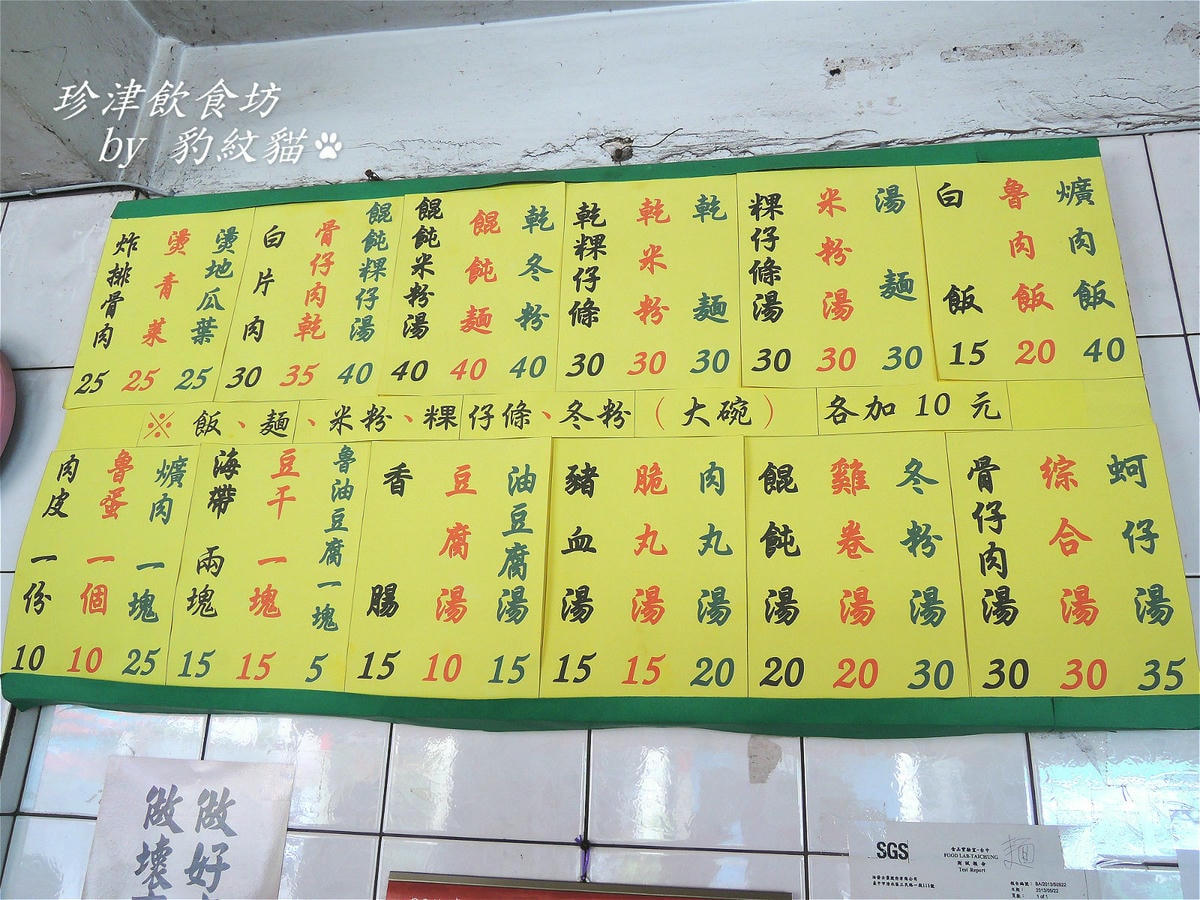 珍津飲食坊
by 豹紋貓
爌肉飯 40
魯肉飯 20
白飯 15
湯麵 30
米粉湯 30
粿仔條湯 30
乾麵 30
乾米粉 30
乾粿仔條 30
乾冬粉 40
餛飩麵 40
餛飩米粉湯 40
餛飩粿仔湯 40
骨仔肉乾 35
白片肉 30
燙地瓜葉 25
燙青菜 25
炸排骨肉 25
※飯、麵、米粉、粿仔條、冬粉（大碗）各加10元
蚵仔湯 35
綜合湯 30
骨仔肉湯 30
冬粉湯 30
雞卷湯 20
餛飩湯 20
肉丸湯 20
脆丸湯 15
豬血湯 15
油豆腐湯 15
豆腐湯 10
香腸 15
魯油豆腐一塊 5
豆干一塊 15
海帶兩塊 15
爌肉一塊 25
魯蛋一個 10
肉皮一份 10
做好
做壞
SGS
食品實驗室-台中
FOOD LAB-TAICHUNG
測試報告
Test Report